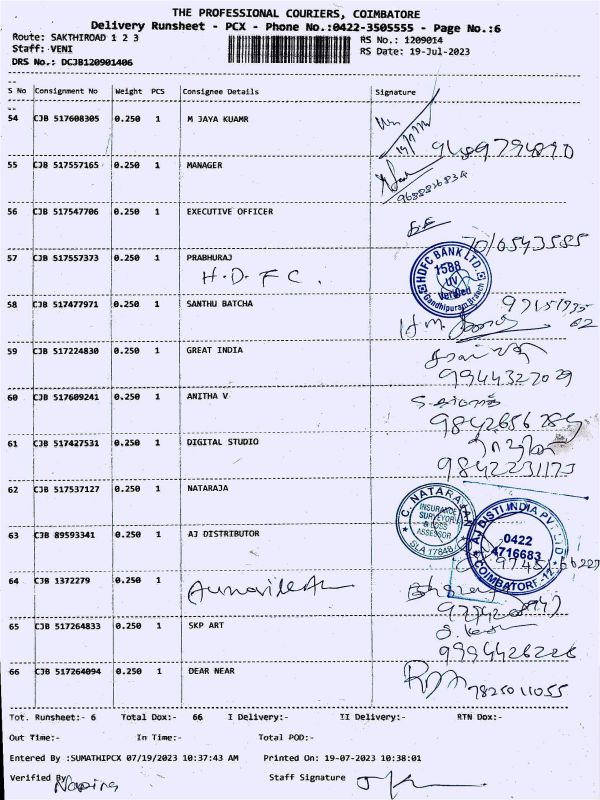 THE PROFESSIONAL COURIERS, COIMBATORE
Delivery Runsheet - PCX - Phone No.:0422-3505555 - Page No.:6
Route: SAKTHIROAD 1 2 3 RS No.: 1209014
Staff: VENI RS Date: 19-Jul-2023
DRS No.: DCJB120901406
S No Consignment No Weight PCS Consignee Details Signature
54 CJB 517608305 0.250 1 M JAYA KUAMR
9489794890
55 CJB 517557165 0.250 1 MANAGER
9688816834
56 CJB 517547706 0.250 1 EXECUTIVE OFFICER
7010543585
57 CJB 517557373 0.250 1 PRABHURAJ
H.D.F.C.
HDFC BANK LTD.
1588
UV
Verified
Gandhipuram Branch
58 CJB 517477971 0.250 1 SANTHU BATCHA
59 CJB 517224830 0.250 1 GREAT INDIA
9944327029
60 CJB 517609241 0.250 1 ANITHA V
9842656784
61 CJB 517427531 0.250 1 DIGITAL STUDIO
9842231173
62 CJB 517537127 0.250 1 NATARAJA
C. NATARAJAN
INSURANCE
SURVEYOR
& LOSS
ASSESSOR
SLA 17848
63 CJB 89593341 0.250 1 AJ DISTRIBUTOR
AJ DISTI INDIA PVT. LTD
0422
4716683
COIMBATORE-12
64 CJB 1372279 0.250 1
65 CJB 517264833 0.250 1 SKP ART
9994426226
66 CJB 517264094 0.250 1 DEAR NEAR
7825011055
Tot. Runsheet:- 6 Total Dox:- 66 I Delivery:- II Delivery:- RTN Dox:-
Out Time:- In Time:- Total POD:-
Entered By :SUMATHIPCX 07/19/2023 10:37:43 AM Printed On: 19-07-2023 10:38:01
Verified By Staff Signature